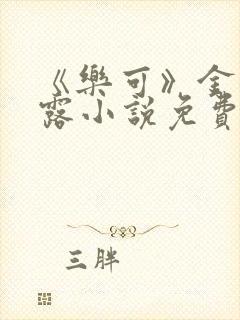 《樂可》金
露小說免費
三胖